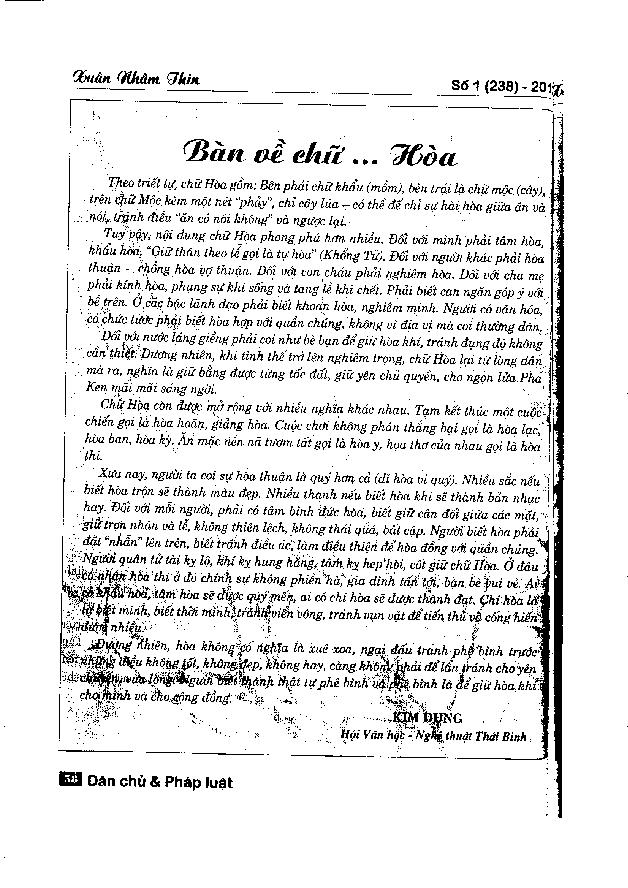 Xuân Nhâm Thìn
Số 1 (238) - 201
Bàn về chữ ... Hòa
Theo triết tự, chữ Hòa gồm: Bên phải chữ khẩu (mồm), bên trái là chữ mộc (cây),
trên chữ Mộc kèm một nét "phảy", chỉ cây lúa – có thể để chỉ sự hài hòa giữa ăn và
nói, tránh điều "ăn có nói không" và ngược lại.
Tuy vậy, nội dung chữ Hòa phong phú hơn nhiều. Đối với mình phải tâm hòa,
khẩu hòa, "Giữ thân theo lễ gọi là tự hòa" (Khổng Tử). Đối với người khác phải hòa
thuận - chồng hòa vợ thuận. Đối với con cháu phải nghiêm hòa. Đối với cha mẹ
phải kính hòa, phụng sự khi sống và tang lễ khi chết. Phải biết can ngăn góp ý với
bề trên. Ở các bậc lãnh đạo phải biết khoan hòa, nghiêm minh. Người có văn hóa,
có chức tước phải biết hòa hợp với quần chúng, không vì địa vị mà coi thường dân.
Đối với nước láng giềng phải coi như bè bạn để giữ hòa khí, tránh đụng độ không
cần thiết. Dương nhiên, khi tình thế trở lên nghiêm trọng, chữ Hòa lại từ lòng dân
mà ra, nghĩa là giữ bằng được từng tấc đất, giữ yên chủ quyền, cho ngọn lửa Pha
Ken mãi mãi sáng ngời.
Chữ Hòa còn được mở rộng với nhiều nghĩa khác nhau. Tạm kết thúc một cuộc
chiến gọi là hòa hoãn, giảng hòa. Cuộc chơi không phân thắng bại gọi là hòa lạc,
hòa ban, hòa kỳ. Ăn mặc nền nã tươm tất gọi là hòa y, họa thơ của nhau gọi là hòa
thi.
Xưa nay, người ta coi sự hòa thuận là quý hơn cả (dĩ hòa vi quý). Nhiều sắc nếu
biết hòa trộn sẽ thành màu đẹp. Nhiều thanh nếu biết hòa khí sẽ thành bản nhạc
hay. Đối với mỗi người, phải có tâm bình đức hòa, biết giữ cân đối giữa các mặt,
giữ trọn nhân và lễ, không thiên lệch, không thái quá, bất cập. Người biết hòa phải
đặt "nhẫn" lên trên, biết tránh điều ác, làm điều thiện để hòa đồng với quần chúng.
Người quân tử tài kỵ lộ, khí kỵ hung hăng, tâm kỵ hẹp hòi, cốt giữ chữ Hòa. Ở đâu
có nhân hòa thì ở đó chính sự không phiền hà, gia đình tấn tới, bạn bè vui vẻ. Ai
có khẩu hòa, tâm hòa sẽ được quý mến, ai có chí hòa sẽ được thành đạt. Chí hòa là
biết mình, biết thời mình, tránh viển vông, tránh vụn vặt để tiến thủ và cống hiến
được nhiều.
Dương nhiên, hòa không có nghĩa là xuê xoa, ngại đấu tránh phê bình trước
những điều không tốt, không đẹp, không hay, càng không phải để lẩn tránh cho yên
Người biết thành thật tự phê bình và phê bình là để giữ hòa khí
cho mình và cho cộng đồng.
KIM DUNG
Hội Văn học - Nghệ thuật Thái Bình
38 Dân chủ & Pháp luật